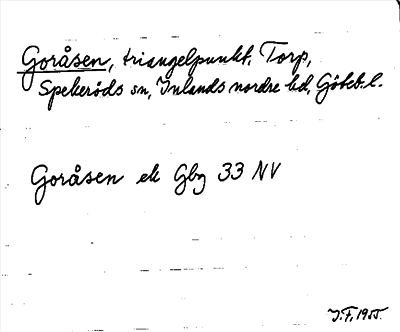 Goråsen, triangelpunkt, Torp,
Spekeröds sn, Inlands nordre hd, Göteb. l.
Goråsen ek Gbg 33 NV
J.F. 1955.